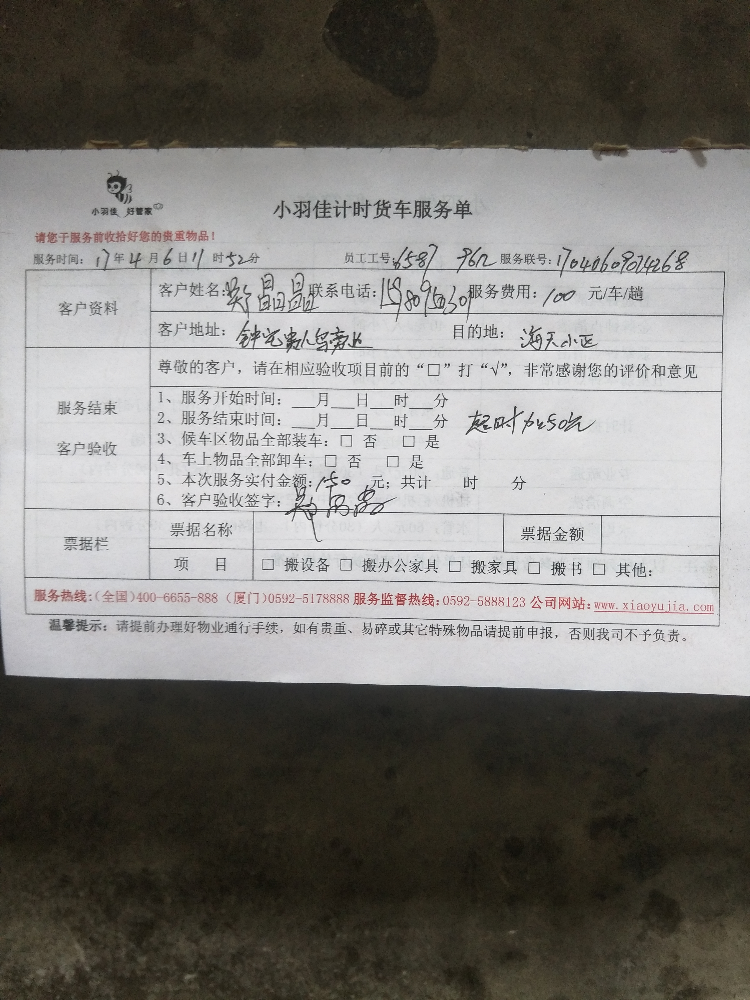 小羽佳 好管家
小羽佳计时货车服务单
请您于服务前收拾好您的贵重物品！
服务时间：17年4月6日11时52分 员工工号：6587 962 服务联号：
客户资料
客户姓名：郑晶晶 联系电话： 服务费用：100 元/车/趟
客户地址： 目的地：海天小区
服务结束
客户验收
尊敬的客户，请在相应验收项目前的“□”打“√”，非常感谢您的评价和意见
1、服务开始时间：__月__日__时__分
2、服务结束时间：__月__日__时__分 超时加50元
3、候车区物品全部装车：□ 否 □ 是
4、车上物品全部卸车：□ 否 □ 是
5、本次服务实付金额：150 元；共计 时 分
6、客户验收签字：
票据栏
票据名称 票据金额
项 目 □ 搬设备 □ 搬办公家具 □ 搬家具 □ 搬书 □ 其他：
服务热线：(全国)400-6655-888 (厦门)0592-5178888 服务监督热线：0592-5888123 公司网站：www.xiaoyujia.com
温馨提示：请提前办理好物业通行手续，如有贵重、易碎或其它特殊物品请提前申报，否则我司不予负责。